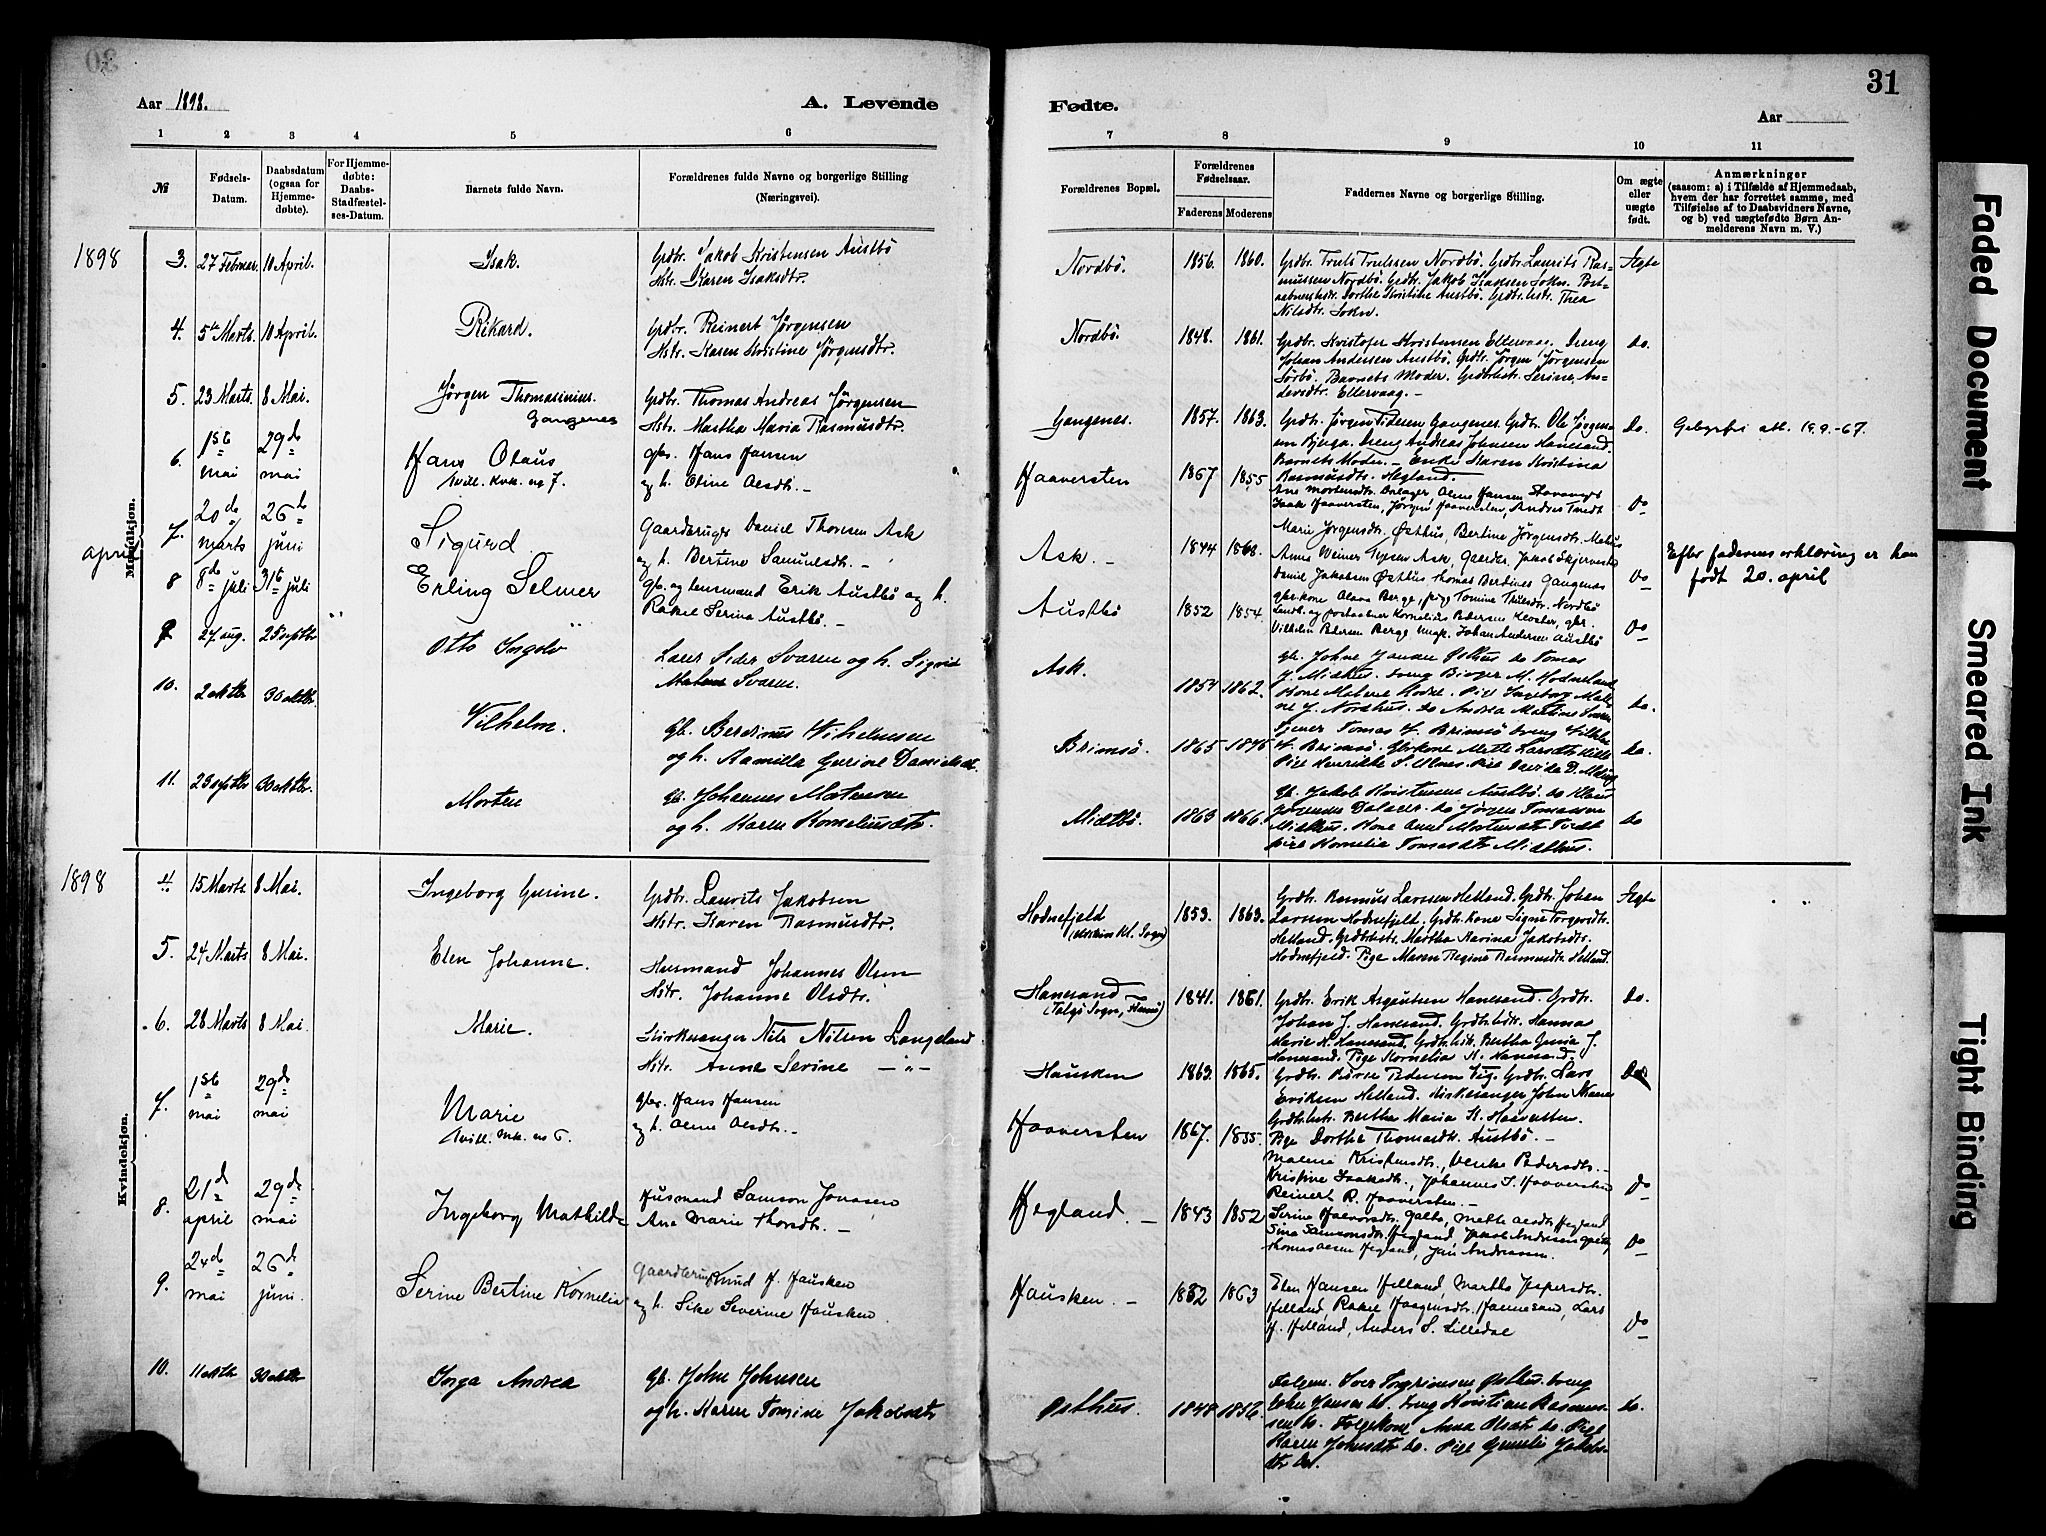 31
Aar 1898.
A. Levende
Fødte.
Aar
1 2 3 4 5 6 7 8 9 10 11
№
Fødsels-
Datum.
Daabsdatum
(ogsaa for
Hjemme-
døbte).
For Hjemme-
døbte:
Daabs-
Stadfæstel-
ses-Datum.
Barnets fulde Navn.
Forældrenes fulde Navne og borgerlige Stilling
(Næringsvei).
Forældrenes Bopæl.
Forældrenes
Fødselsaar.
Faderens Moderens
Faddernes Navne og borgerlige Stilling.
Om ægte
eller
uægte
født.
Anmærkninger
(saasom: a) i Tilfælde af Hjemmedaab,
hvem der har forrettet samme, med
Tilføielse af to Daabsvidners Navne,
og b) ved uægtefødte Børn An-
melderens Navn m. V.)
Mandkjøn.
1898
3. 27 Februar. 10 April. Isak.
Grdbr. Jakob Kristensen Austbö
Hstr. Karen Isaksdtr.
Nordbö. 1856. 1860.
Grdbr. Truls Trulssen Nordbö. Grdbr. Laurits Ras-
mussen Nordbö. Grdbr. Jakob Isaksen Sokn. Post-
Dorthe Kristine Austbö. Grdbr.hstr. Thea
Nilsdtr. Sokn.
Ægte
4. 5te Marts. 10 April. Rikard.
Grdbr. Reinert Jørgensen
Hstr. Karen Kristine Jørgensdtr.
Nordbö. 1848. 1861.
Grdbr. Kristofer Kristensen Ellervaag. Dreng
Johan Andersen Austbö. Grdbr. Jørgen Jørgensen
Sörbö. Barnets Moder. Grdbrhstr. Serine An-
Ellervaag. —
Do.
5. 23 Marts. 8 Mai. Jørgen Thomasinius.
Gangenes
Grdbr. Thomas Andreas Jörgensen
Hstr. Martha Maria Rasmusdtr.
Gangenes. 1857. 1863.
Grdbr. Jørgen Gangenes. Grdbr. Ole Jørgens-
en Bjerga. Dreng Andreas Johnsen Hanesand.
Barnets Moder. — Enke Karen Kristina
Rasmusdtr. Hegland.
Do.
Gebyrfri att. 19.9.-67.
6. 1st mai 29de mai
Hans Olaus
Tvill. Kvk. no 7.
gbr. Hans Hansen
og h. Oline Olesdtr. —
Haaversten 1867 1855
Ane Mortensdtr. Dalager, Olene Hansen Stavanger
Isaak Haaversten, Jørgen Haaversten, Andreas Tvedt
Do
7. 20de marts 26de juni
april
Sigurd
Gaardbruger Daniel Thorsen Ask
og h. Bertine Samuelsdtr. —
Ask. — 1844 1868.
Marie Jørgensdtr. Østhus, Bertine Jørgensdtr.
Daniel Jakobsen Østhus, Thomas Berdines Gangenes
Do
Efter faderens erklæring er han
født 20. april
8 8de juli 31te juli
Erling Selmer
gbr. og lensmand Erik Austbö og h.
Rakel Serina Austbö. —
Austbö 1852 1854.
gbr.kone Olava Berge, pige Tomine Trulsdtr. Nordbö
Landh. og postaabner Kornelius Pedersen Kloster, gbr.
Vilhelm Pedersen Berge ungk. Johan Andersen Austbö
Do
9 27 aug. 25 septbr
Otto Ingolv
Lærer Peder Svaren og h. Sigrid
Malene Svaren.
Ask. 1854 1862.
do.
10. 2 oktbr 30 oktbr.
Vilhelm.
gb. Berdinus Vilhelmsen
og h. Kamilla Gurine Danielsdtr.
Brimsö. 1865 1875
do.
11. 25 septbr 30 oktbr.
Morten
gb. Johannes Mortensen
og h. Karen Korneliusdtr.
Midtbö. 1863 1866.
gb. Jakob Kristensen Austbö. do Klaus
Jørgensen Dalager. do Jørgen Tomassen
Midthus. Kone Anne Mortensdtr Tvedt
pige Kornelia Tomasdtr Midthus.
do
Kvindekjøn.
1898
4. 15 Marts 8 Mai. Ingeborg Gurine.
Grdbr. Laurits Jakobsen
Hstr. Karen Rasmusdtr.
Hodnefjeld
1853. 1863.
Grdbr. Rasmus Larssen Helland. Grdbr. Johan
Larssen Hodnefjeld. Grdbr. Kone Signe Torgersdtr.
Helland. Grdbrhstr. Martha Karina Jakobsdtr.
Hodnefjeld. Pige Maren Regine Rasmusdtr. Helland.
Ægte
5. 24 Marts 8 Mai. Elen Johanne.
Husmand Johannes Olsen
Hstr. Johanne Olsdtr.
Hanesand
1841. 1861.
Grdbr. Erik Asgautsen Hanesand. Grdbr.
Johan J. Hanesand. Grdbrhstr. Hanna
Marie H. Hanesand. Grdbrhstr. Bertha Gunia J.
Hanesand. Pige Kornelia K. Hanesand.
Do.
6. 28 Marts 8 Mai. Marie.
Kirkesanger Nils Nilsen Langeland
Hstr. Anne Serine — „ —
Hausken 1863. 1865.
Grdbr. Börse Pedersen Vig. Grdbr. Lars
Eriksen Helland. Kirkesanger John
Grdbrhstr. Bertha Maria H. Haversten.
Pige Dorthe Thomasdtr. Austbö. —
Do
7. 1st mai 29de mai
Marie
Tvill. Mk. no 6.
gbr. Hans Hansen
og h. Olene Olesdtr. —
Haaversten 1867. 1855.
Malene Kristensdtr., Velike Pedersdtr. —
Kristine Isaksdtr., Johannes I. Haaversten
Reinert R. Haaversten —
Do
8. 21de april 29de mai
Ingeborg Mathilde
Husmand Samson Jonassen
Ane Marie Thorsdtr. —
Hegland. — 1843 1852
Serine Halvorsdtr. Galta, Mette Olesdtr. Hegland
Sina Samsonsdtr. Hegland, Jakob Andersen Galta,
Thomas Olsen Hegland, Jan Andreasen.
Do
9. 24de mai 26de juni.
Serine Bertine Kornelia
Gaardbruger Knud H. Hausken
og h. Silie Severine Hausken.
Hausken. — 1862 1863
Elen Hansen Helland, Martha Jespersdtr.
Helland, Rakel Haagensdtr. Hannesand, Lars
H. Helland, Anders S. Lilledal
Do
10. 11 oktbr 30 oktbr
Inga Andrea
gb. John Johnsen
og h. Karen Tomine Jakobsdtr
Østhus. 1848 1856.
John Hansen do. Dreng Kristian Rasmus-
sen do. Følgekone Anna Olsdtr do. Pige
Karen Johnsdtr do. Pige Gunelie Jakobs-
dtr do.
do.
Faded Document
Smeared Ink
Tight Binding